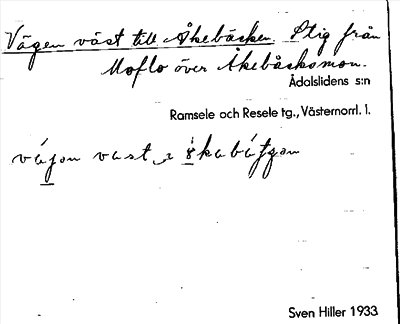 Vägen väst till Åkebäcken. Stig från
Moflo över Åkebäckomon.
Ådalslidens s:n
Ramsele och Resele tg., Västernorrl. l.
Sven Hiller 1933